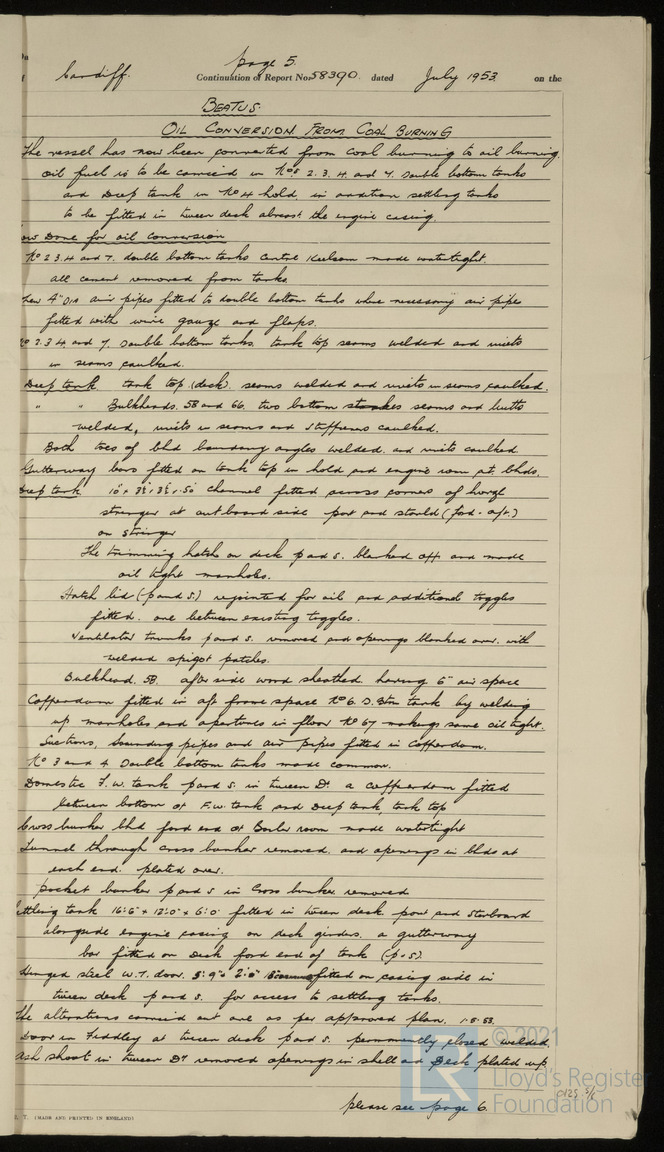 page 5.
Cardiff. Continuation of Report No. 58390. dated July 1953. on the
BEATUS.
OIL CONVERSION FROM COAL BURNING
The vessel has now been converted from coal burning to oil burning.
Oil fuel is to be carried in Nos 2. 3. 4. and 7. double bottom tanks
and Deep tank in No 4 hold, in addition settling tanks
to be fitted in tween deck abreast the engine casing.
ow Done for oil conversion
No 2 3. 4 and 7. double bottom tanks centre keelson made watertight.
all cement removed from tanks
New 4" Dia air pipes fitted to double bottom tanks where necessary air pipes
fitted with wire gauze and flaps.
No 2. 3 4 and 7. double bottom tanks. tank top seams welded and rivets
in seams caulked.
Deep tank tank top. (deck). seams welded and rivets in seams caulked.
" " Bulkheads. 58 and 66. two bottom strakes seams and butts
welded, rivets in seams and stiffeners caulked.
Both toes of bhd boundary angles welded. and rivets caulked.
Gutterway bars fitted on tank top in hold and engine room at. bhds.
Deep tank. 10" x 3½ x 3½ x .50 channel fitted across corners of horzl
stringer at outboard side port and starbd (ford. aft.)
on stringer
The trimming hatch on deck p and s. blanked off and made
oil tight manholes.
Hatch lid (p and s.) rejointed for oil and additional toggles
fitted. one between existing toggles.
Ventilator trunks p and s. removed and openings blanked over. with
welded spigot patches.
Bulkhead. 58. after side wood sheathed having 6" air space
Cofferdam fitted in aft frame space No 6. D. Btm tank by welding
up manholes and apertures in floor No 67 making same oil tight.
Suctions, sounding pipes and air pipes fitted in Cofferdam.
No 3 and 4 Double bottom tanks made common.
Domestic F. W. tank p and s. in tween Dk. a cofferdam fitted
between bottom of F. W. tank and Deep tank, tank top
Cross bunker bhd ford end of Boiler room made watertight
Tunnel through cross bunker removed. and openings in bhds at
each end. plated over.
pocket bunker p and s in Cross bunker removed
ettling tank 16'.6" x 12'.0" x 6'.0 fitted in tween deck. port and starboard
alongside engine casing on deck girders. a gutterway
bar fitted on Deck ford end of tank (p & s).
Hinged steel W. T. door. 5'. 9" x 2'. 6" fitted on casing side in
tween deck p and s. for access to settling tanks.
The alterations carried out are as per approved plan. 1.5.53.
Door in Fiddley at tween deck p and s. permanently closed welded.
Ash shoot in tween Dk removed openings in shell and Deck plated up.
please see page 6.
© 2021
Lloyd's Register
Foundation
0125 5/6
R. T. (MADE AND PRINTED IN ENGLAND)